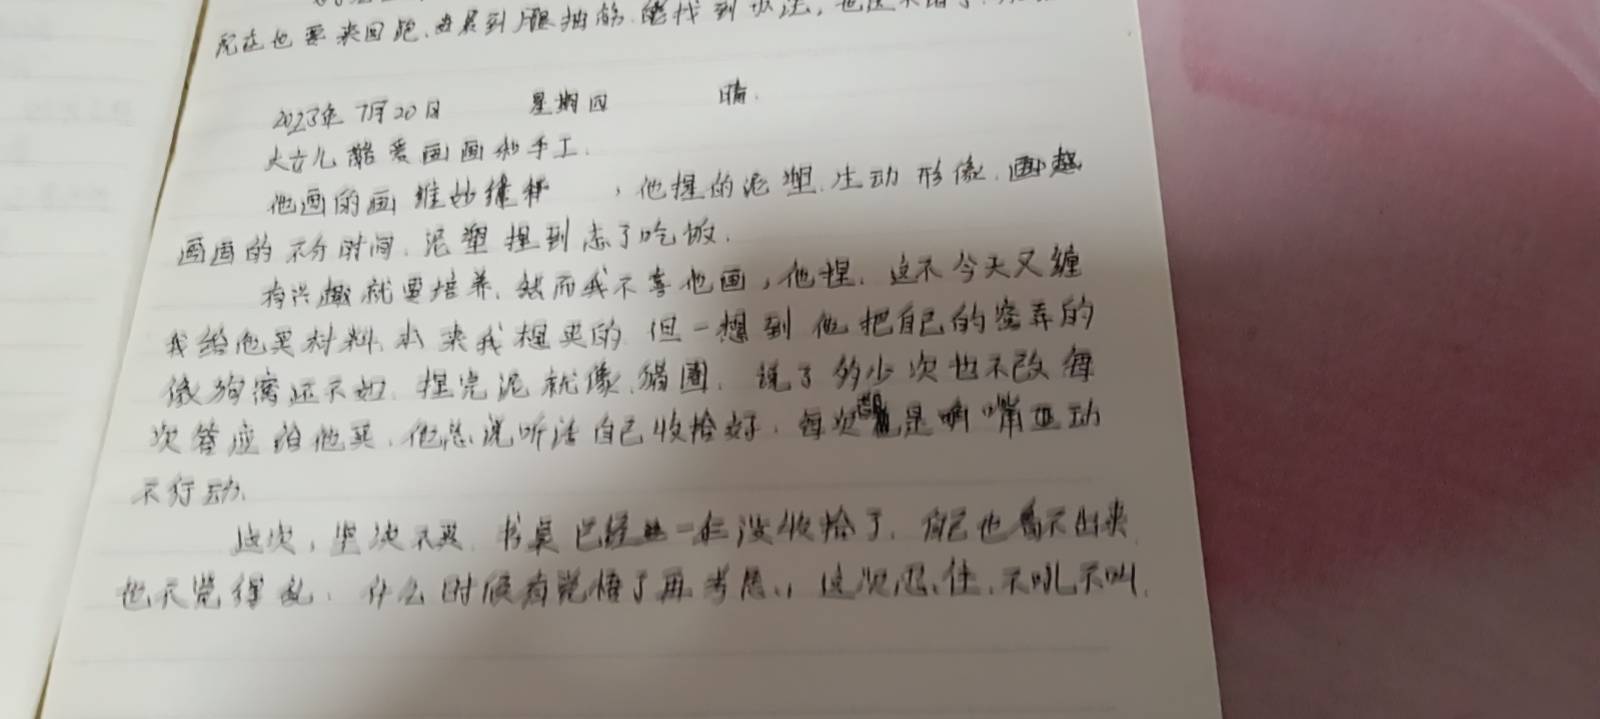 也要来回跑,由累到腿抽筋.能找到办法,也
2023年7月20日 星期四 晴.
大古儿酷爱画画和手工.
他画的画维妙维,他捏的泥塑.生动形像.画
画画的不分时间.泥塑捏到忘了吃饭.
有兴趣就要培养.然而我不喜他画,他捏.这不今天又缠
我给他买材料.本来我想买的.但一想到他把自己的窝弄的
像狗窝还不如.捏完泥就像.猪圈.说了多少次也不改.每
次答应给他买.他总说听话自己收拾好.每次都是嘴动
不行动.
这次,坚决不买.书桌已经一年没收拾了.自己也看不出来
也不觉得乱.什么时候有觉悟了再考虑,这次忍住.不吼不叫.